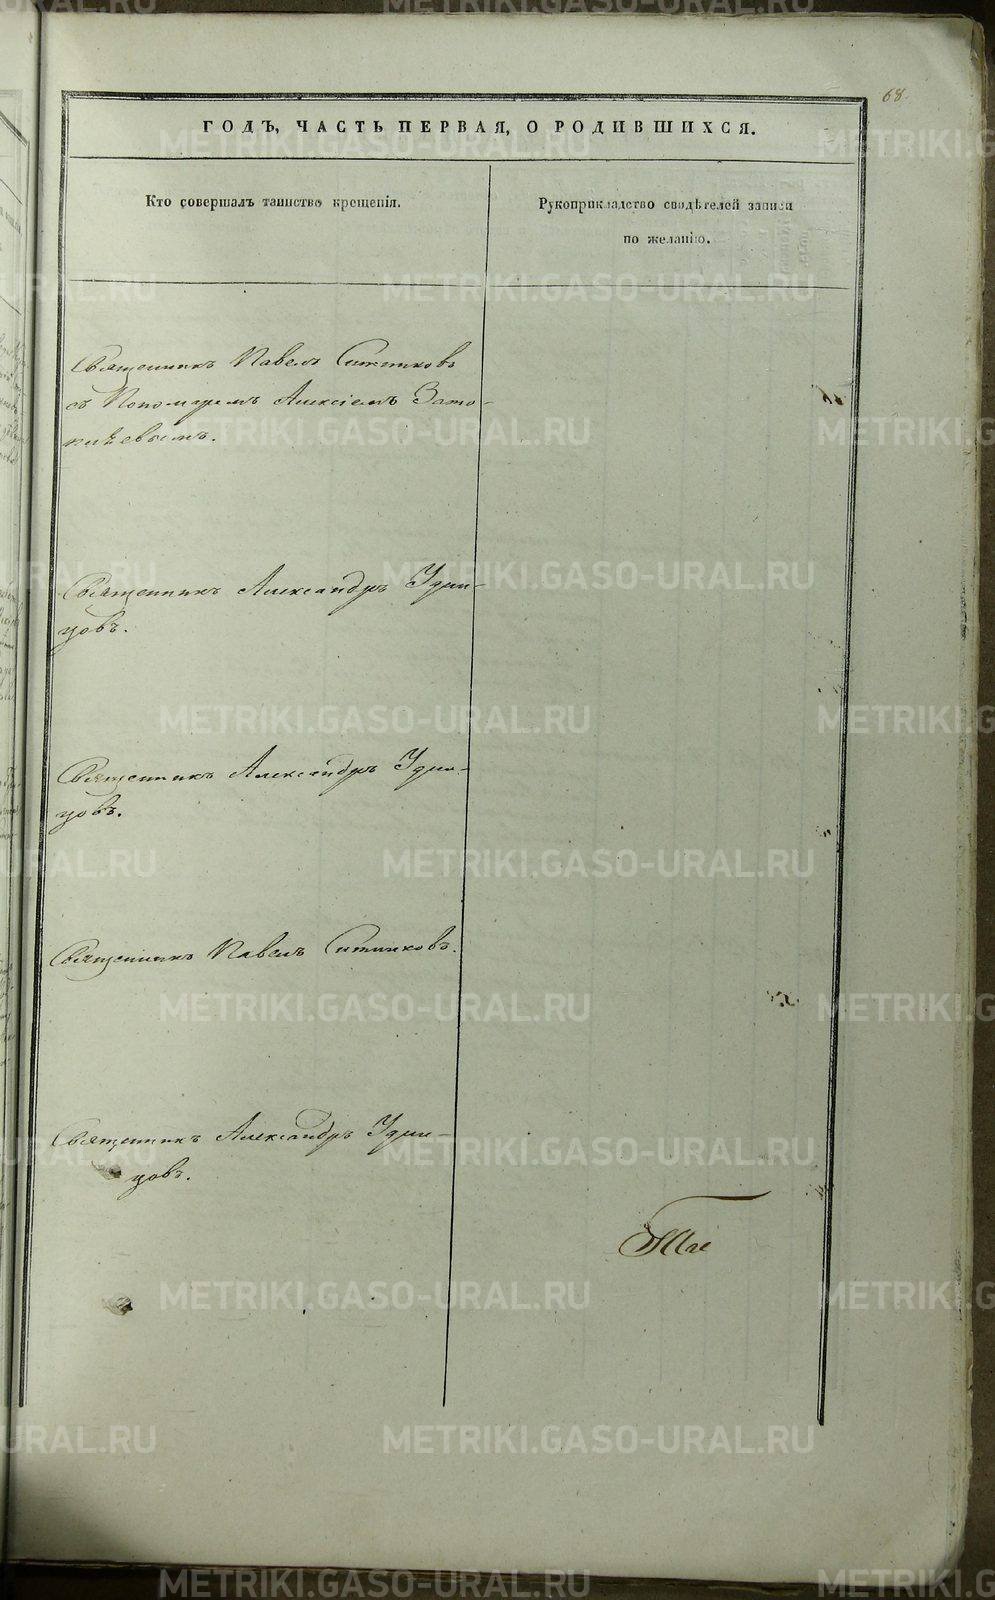 68.
ГОДЪ, ЧАСТЬ ПЕРВАЯ, О РОДИВШИХСЯ.
Кто совершалъ таинство крещенія.
Рукоприкладство свидѣтелей записи
по желанію.
Священникъ Павелъ Ситниковъ
съ Пономаремъ Алексіемъ Зато-
Священникъ Александръ Удин-
цовъ.
Священникъ Александръ Удин-
цовъ.
Священникъ Павелъ Ситниковъ.
Священникъ Александръ Удин-
цовъ.
METRIKI.GASO-URAL.RU